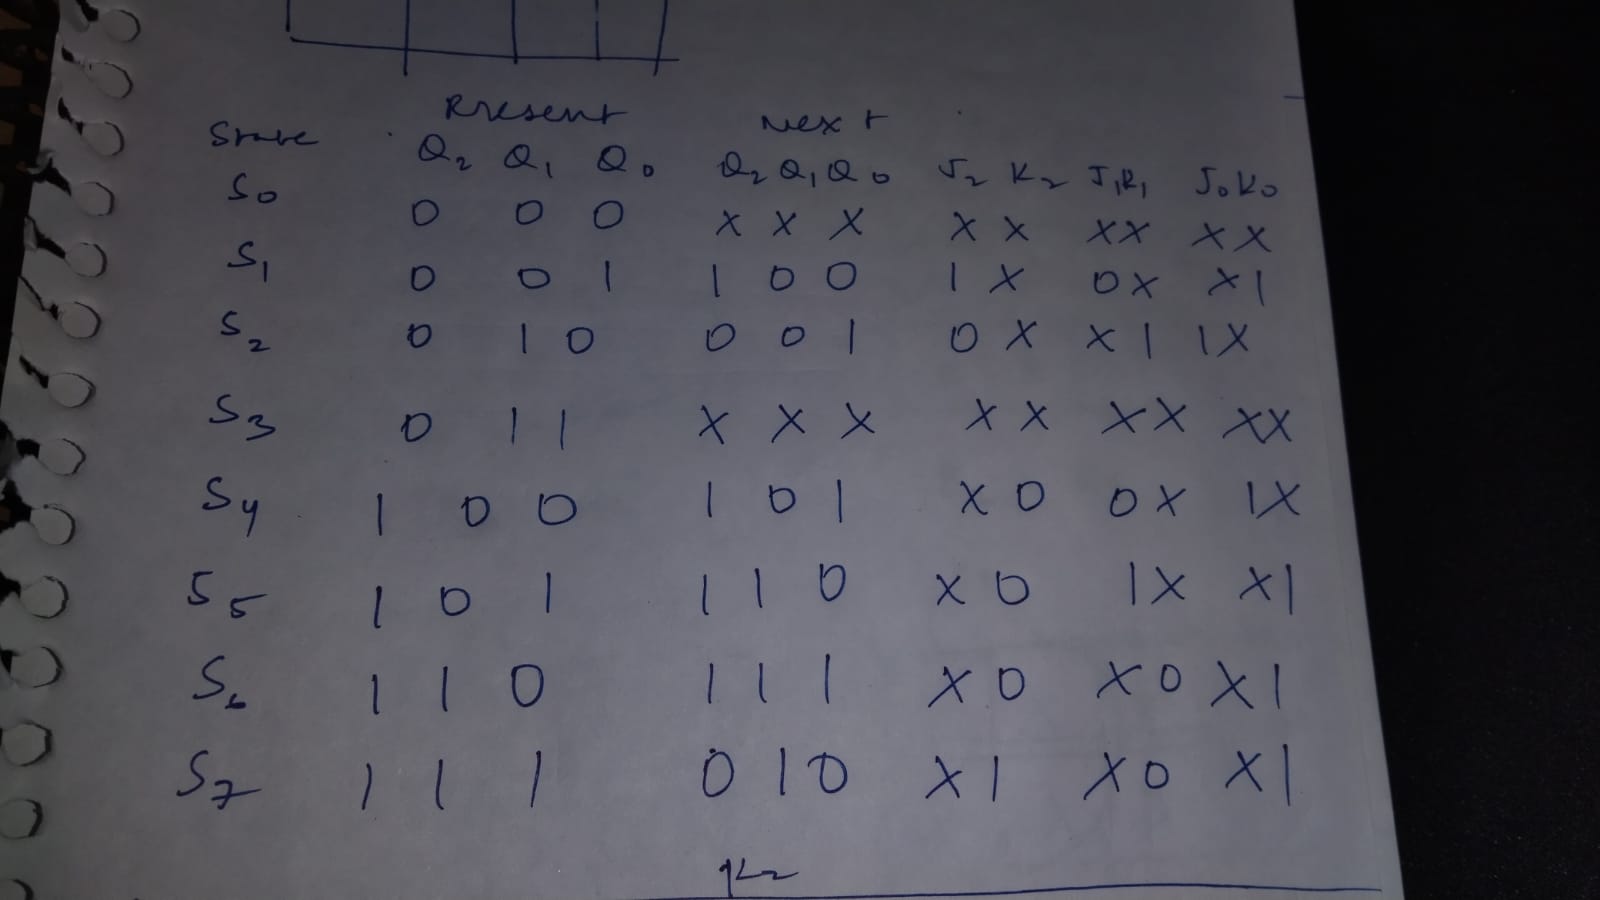 Present Next
State Q₂ Q₁ Q₀ Q₂ Q₁ Q₀ J₂ K₂ J₁K₁ J₀K₀
S₀ 0 0 0 X X X X X XX XX
S₁ 0 0 1 1 0 0 1 X 0X X1
S₂ 0 1 0 0 0 1 0 X X1 1X
S₃ 0 1 1 X X X X X XX XX
S₄ 1 0 0 1 0 1 X 0 0X 1X
S₅ 1 0 1 1 1 0 X 0 1X X1
S₆ 1 1 0 1 1 1 X 0 X0 X1
S₇ 1 1 1 0 1 0 X 1 X0 X1